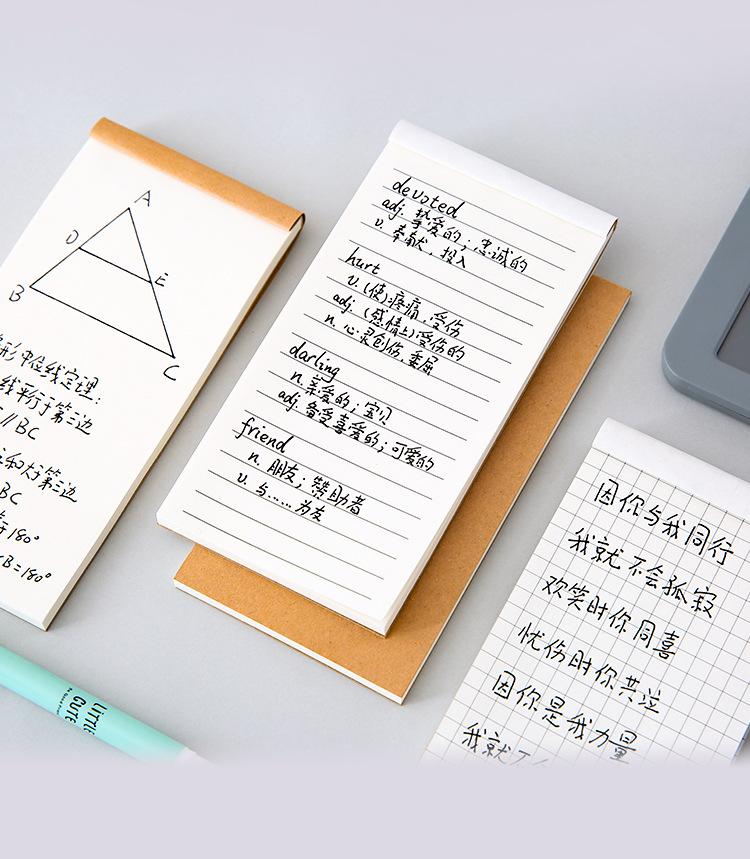 A
D
E
B
C
形中位线定理:
线平行于第三边
// BC
之和大于第三边
BC
180°
B=180°
devoted
adj. 挚爱的；忠诚的
v. 奉献，投入
hurt
v. (使)疼痛，受伤
adj. (感情上)受伤的
n. 心灵创伤，委屈
darling
n. 亲爱的；宝贝
adj. 备受喜爱的；可爱的
friend
n. 朋友；赞助者
v. 与……为友
因你与我同行
我就不会孤寂
欢笑时你同喜
忧伤时你共泣
因你是我力量
我就不
LITTLE
CUTE